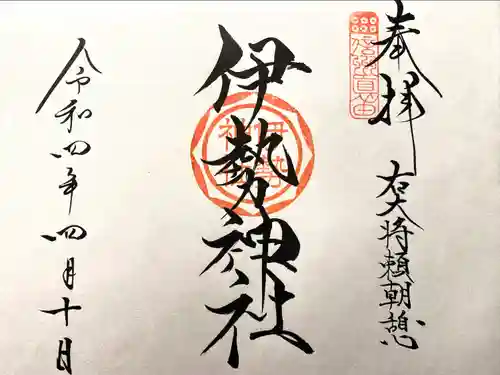 奉拝
右大将頼朝憩
伊勢神社
令和四年四月十日